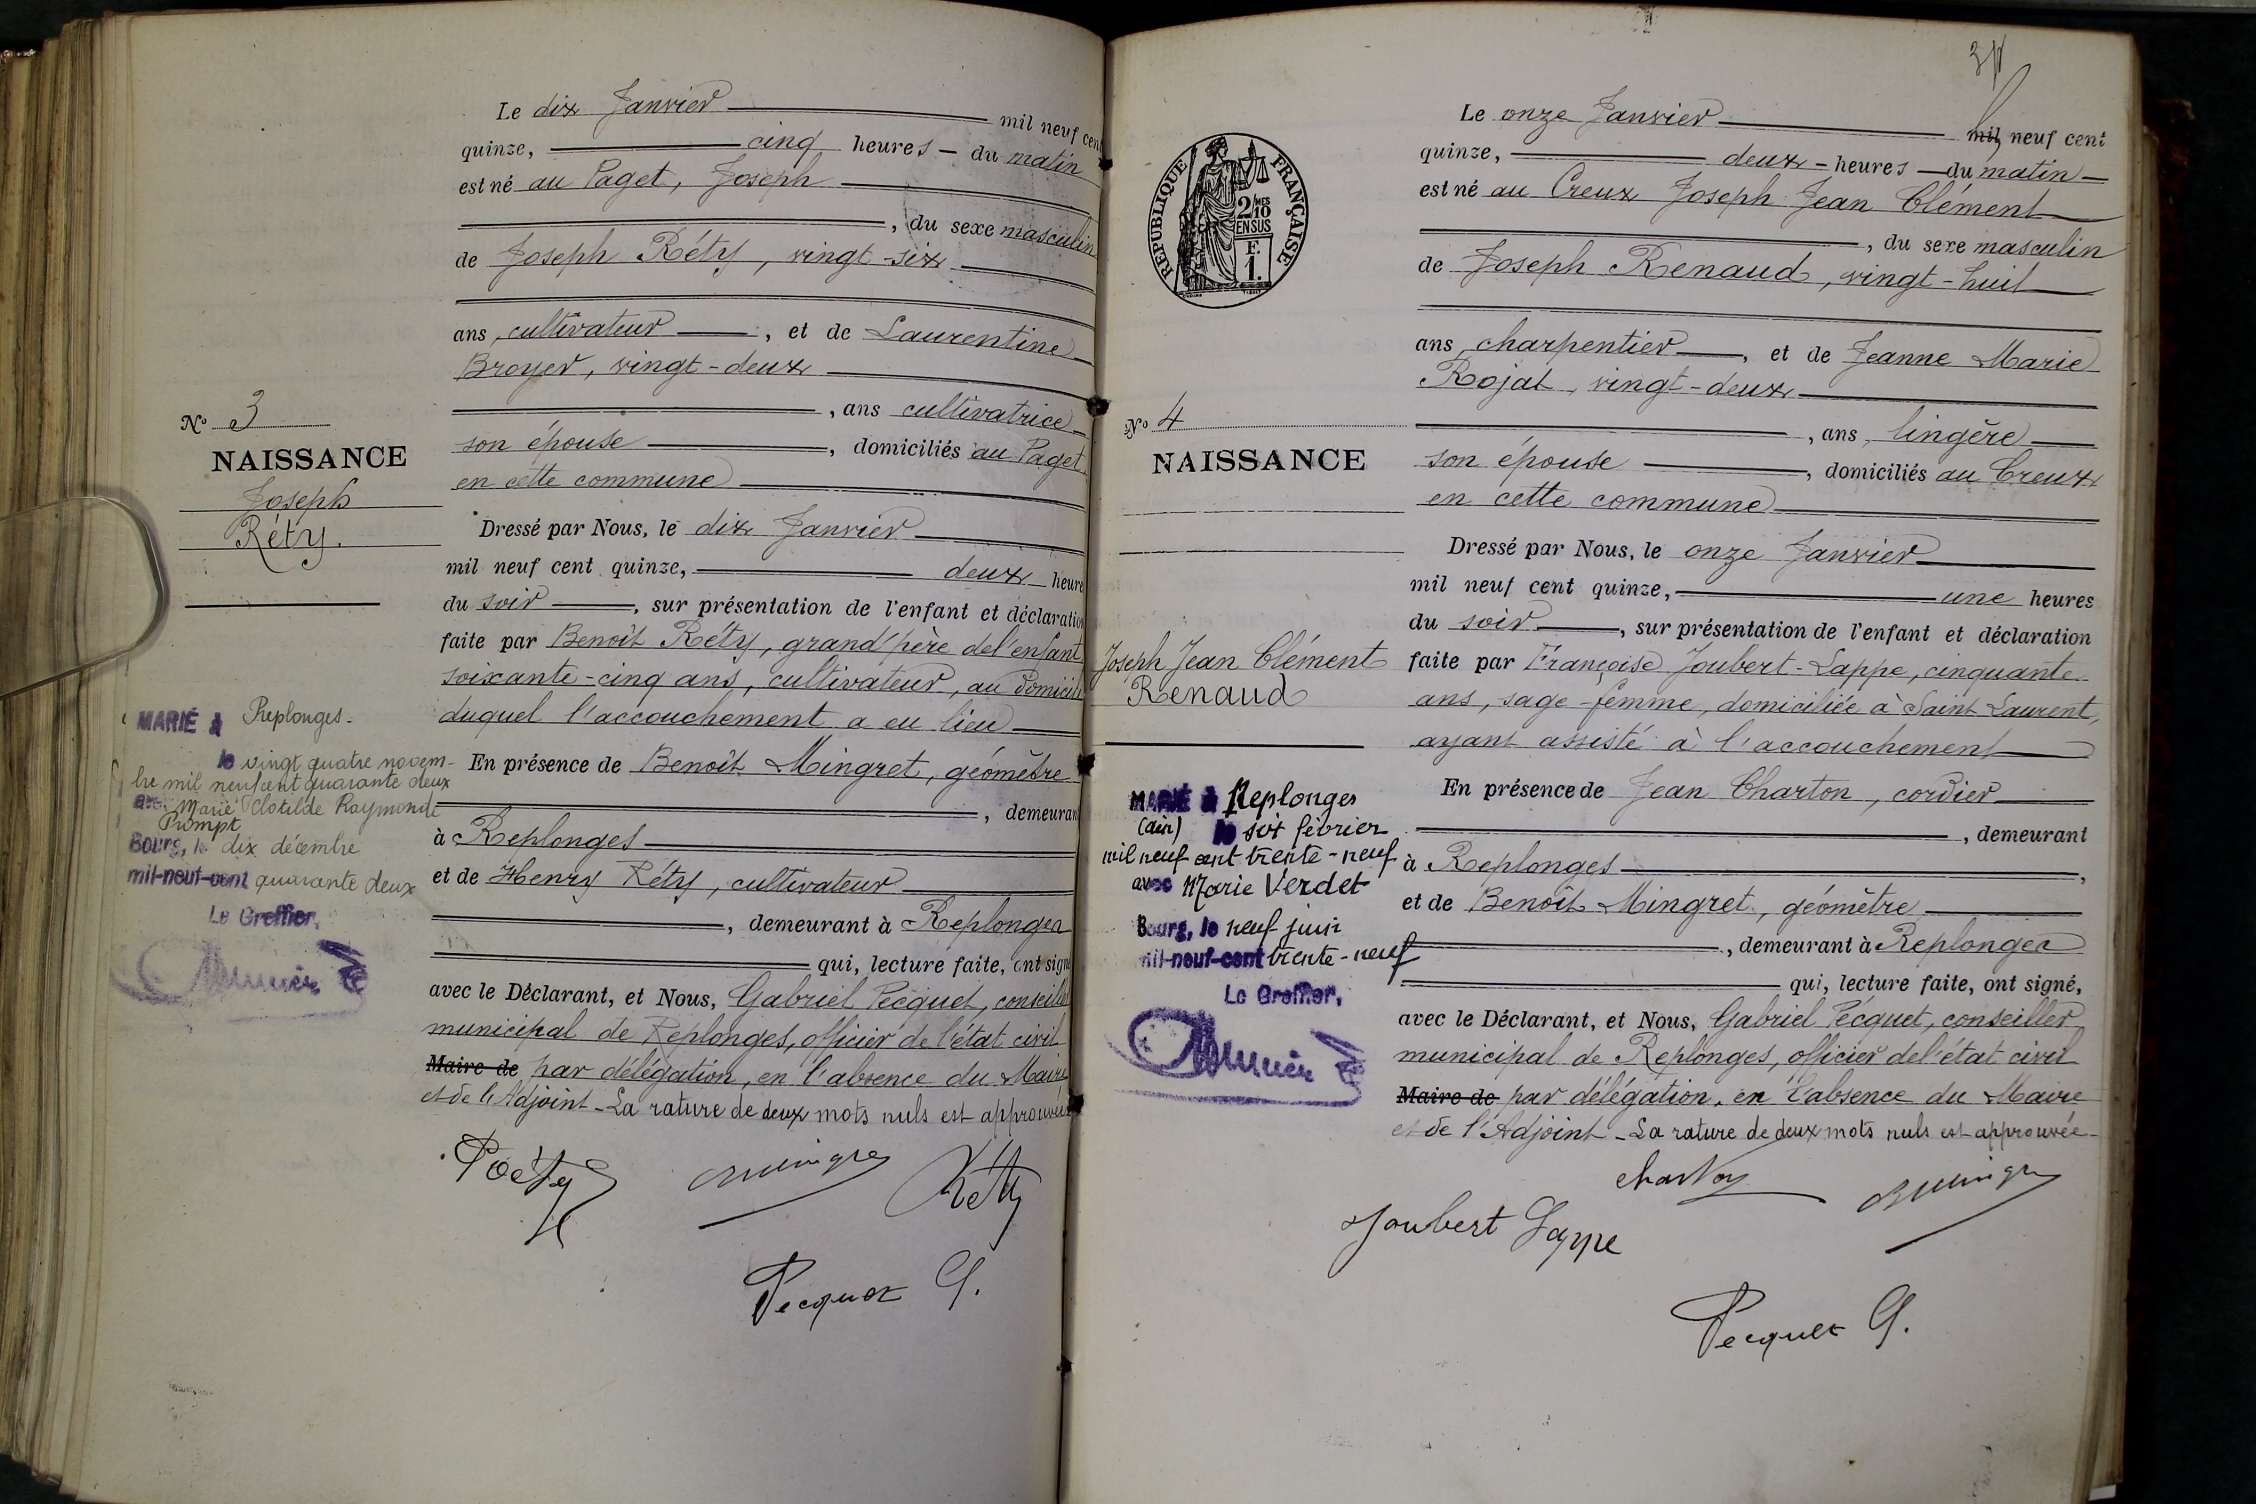 Le dix Janvier mil neuf cent
quinze, cinq heures - du matin
est né au Paget, Joseph
, du sexe masculin
de Joseph Réty, vingt-six
ans, cultivateur, et de Laurentine
Broyer, vingt-deux
, ans cultivatrice
son épouse, domiciliés au Paget
en cette commune
Nº 3
NAISSANCE
Joseph
Réty.
Dressé par Nous, le dix Janvier
mil neuf cent quinze, deux heure
du soir, sur présentation de l'enfant et déclaration
faite par Benoît Réty, grand'père de l'enfant
soixante-cinq ans, cultivateur, au domicile
duquel l'accouchement a eu lieu
En présence de Benoît Mingret, géomètre
, demeurant
à Replonges
et de Henry Réty, cultivateur
, demeurant à Replonges
qui, lecture faite, ont signé
avec le Déclarant, et Nous, Gabriel Pecquet, conseiller
municipal de Replonges, officier de l'état civil
Maire de par délégation, en l'absence du Maire
et de l'Adjoint - La rature de deux mots nuls est approuvée
MARIÉ à Replonges.
le vingt quatre novem-
bre mil neuf cent quarante deux
avec Marie Clotilde Raymonde
Prompt
Bourg, le dix décembre
mil-neuf-cent quarante deux
Le Greffier,
Réty
Mingret
Réty
Pecquet G.
Le onze Janvier mil neuf cent
quinze, deux - heures - du matin -
est né au Creux Joseph Jean Clément
, du sexe masculin
de Joseph Renaud, vingt-huit
ans, charpentier, et de Jeanne Marie
Rojat, vingt-deux
, ans, lingère
son épouse, domiciliés au Creux
en cette commune
RÉPUBLIQUE FRANÇAISE
2/10 MES
EN SUS
F.
1.
Nº 4
NAISSANCE
Joseph Jean Clément
Renaud
Dressé par Nous, le onze Janvier
mil neuf cent quinze, une heures
du soir, sur présentation de l'enfant et déclaration
faite par Françoise Joubert-Lappe, cinquante
ans, sage-femme, domiciliée à Saint Laurent,
ayant assisté à l'accouchement
En présence de Jean Charton, cordier
, demeurant
à Replonges,
et de Benoît Mingret, géomètre
, demeurant à Replonges
qui, lecture faite, ont signé,
avec le Déclarant, et Nous, Gabriel Pécquet, conseiller
municipal de Replonges, officier de l'état civil
Maire de par délégation, en l'absence du Maire
et de l'Adjoint - La rature de deux mots nuls est approuvée -
MARIÉ à Replonges
(ain) le six février
mil neuf cent trente-neuf
avec Marie Verdet
Bourg, le neuf juin
mil-neuf-cent trente-neuf
Le Greffier,
Charton
Mingret
Joubert Lappe
Pecquet G.